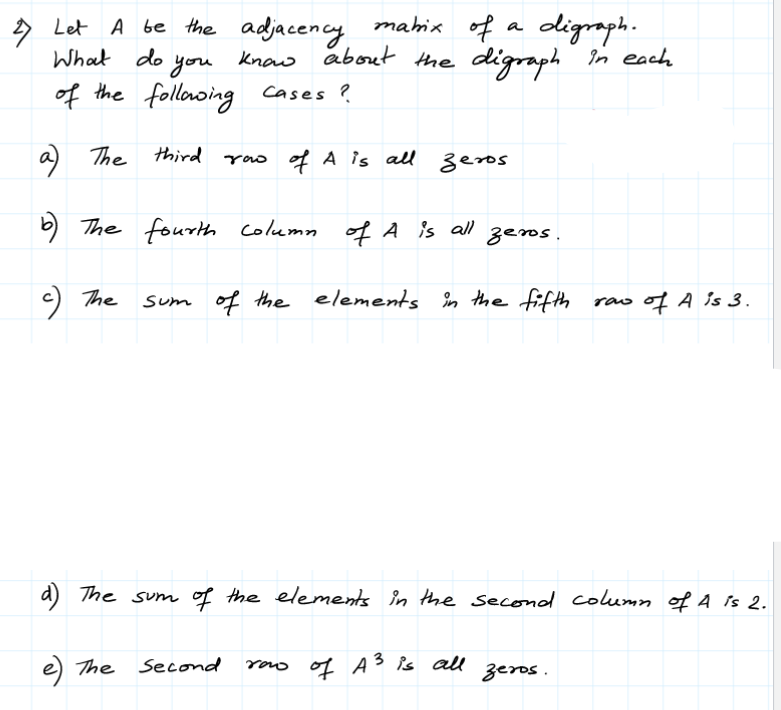 2) Let A be the adjacency matrix of a digraph.
What do you know about the digraph in each
of the following cases ?
a) The third row of A is all zeros
b) The fourth column of A is all zeros.
c) The sum of the elements in the fifth row of A is 3.
d) The sum of the elements in the second column of A is 2.
e) The second row of A³ is all zeros.